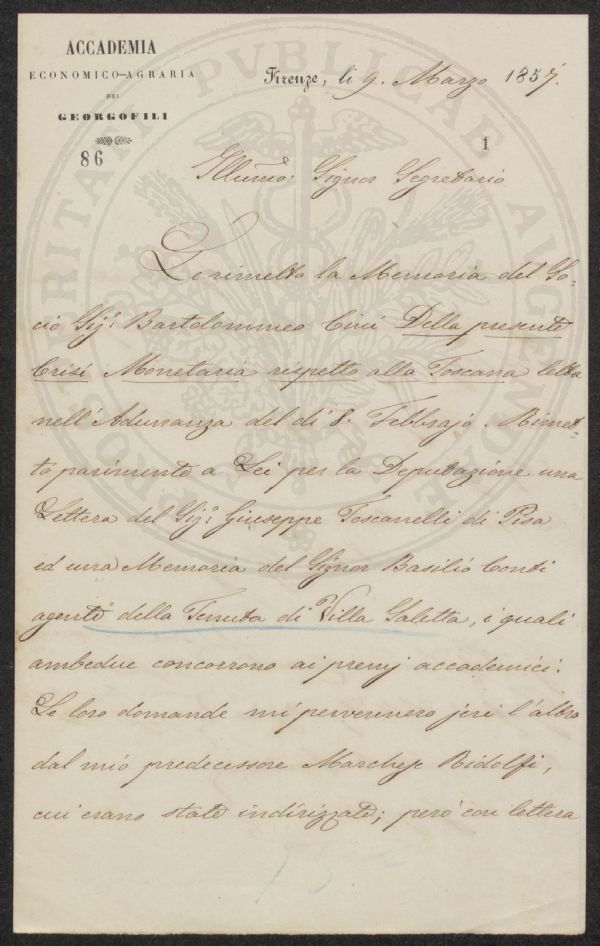 ACCADEMIA
ECONOMICO-AGRARIA
DEI
GEORGOFILI
86
Firenze, li 9. Marzo 1857.
1
Illumo: Signor Segretario
Le rimetto la Memoria del So-
cio Sig: Bartolommeo Cini Della presente
Crisi Monetaria rispetto alla Toscana letta
nell'Adunanza del di 8. Febbrajo. Rimet-
to parimente a Lei per la Deputazione una
Lettera del Sig: Giuseppe Toscanelli di Pisa
ed una Memoria del Signor Basilio Conti
agente della Tenuta di Villa Saletta, i quali
ambedue concorrono ai premj accademici.
Le loro domande mi pervennero jeri l'altro
dal mio predecessore Marchese Ridolfi,
cui erano state indirizzate; però con lettera
PROSPERITATI PVBLICAE AVGENDAE